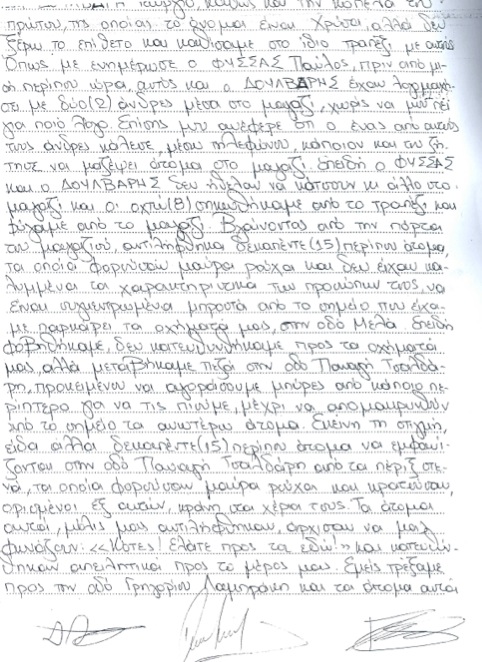 και την κοπέλα του
πρώτου, της οποίας το όνομα είναι Χρύσα, αλλά δεν
ξέρω το επίθετο και καθίσαμε στο ίδιο τραπέζι με αυτούς
Όπως με ενημέρωσε ο ΦΥΣΣΑΣ Παύλος, πριν από μι-
ση περίπου ώρα, αυτός και ο ΔΟΥΛΒΑΡΗΣ είχαν λογομαχή-
σει με δύο (2) άνδρες μέσα στο μαγαζί, χωρίς να μου πεί
για ποιό λόγο. Επίσης μου ανέφερε ότι ο ένας από αυτούς
τους άνδρες κάλεσε, μέσω τηλεφώνου, κάποιον και του ζή-
τησε να μαζέψει άτομα στο μαγαζί. Επειδή ο ΦΥΣΣΑΣ
και ο ΔΟΥΛΒΑΡΗΣ δεν ήθελαν να κάτσουν κι άλλο στο
μαγαζί και οι οχτώ (8) σηκωθήκαμε από το τραπέζι και
φύγαμε από το μαγαζί. Βγαίνοντας από την πόρτα
του μαγαζιού, αντιλήφθηκα δεκαπέντε (15) περίπου άτομα,
τα οποία φορούσαν μαύρα ρούχα και δεν είχαν κα-
λυμμένα τα χαρακτηριστικά των προσώπων τους, να
είναι συγκεντρωμένα μπροστά από το σημείο που είχα-
με παρκάρει τα οχήματά μας, στην οδό Μελά. Επειδή
φοβηθήκαμε, δεν κατευθυνθήκαμε προς τα οχήματά
μας, αλλά μεταβήκαμε πεζοί στην οδό Παναγή Τσαλδά-
ρη, προκειμένου να αγοράσουμε μπύρες από κάποιο πε-
ρίπτερο για να τις πιούμε, μέχρι να απομακρυνθούν
από το σημείο τα ανωτέρω άτομα. Εκείνη τη στιγμή,
είδα άλλα δεκαπέντε (15) περίπου άτομα να εμφανί-
ζονται στην οδό Παναγή Τσαλδάρη από τα πέριξ στε-
νά, τα οποία φορούσαν μαύρα ρούχα και κρατούσαν,
ορισμένοι εξ αυτών, κράνη στα χέρια τους. Τα άτομα
αυτά, μόλις μας αντιλήφθηκαν, άρχισαν να μας
φωνάζουν: <<Κότες! Ελάτε προς τα εδώ!>> και κατευθύν-
θηκαν απειλητικά προς το μέρος μας. Εμείς τρέξαμε
προς την οδό Γρηγορίου Λαμπράκη και τα άτομα αυτά